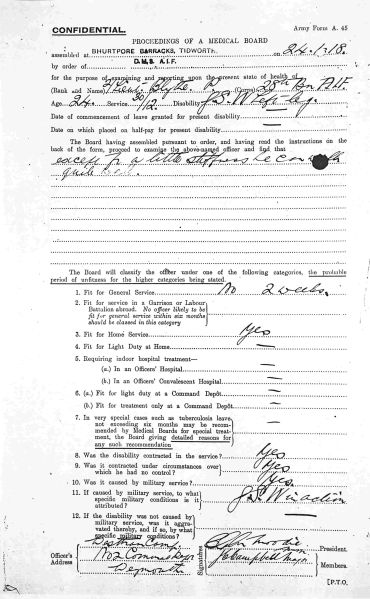 CONFIDENTIAL. Army Form A. 45
PROCEEDINGS OF A MEDICAL BOARD
assembled at BHURTPORE BARRACKS, TIDWORTH. on 24.1.18.
by order of D.M.S. A.I.F.
for the purpose of examining and reporting upon the present state of health of
(Rank and Name) (Corps) 28th Bn AIF.
Age 24. Service 30/12. Disability
Date of commencement of leave granted for present disability
Date on which placed on half-pay for present disability —
The Board having assembled pursuant to order, and having read the instructions on
the back of the form, proceed to examine the above-named officer and find that
except for a little stiffness he can walk
quite well.
The Board will classify the officer under one of the following categories, the probable
period of unfitness for the higher categories being stated
1. Fit for General Service No 2 weeks.
2. Fit for service in a Garrison or Labour
Battalion abroad. No officer likely to be
fit for general service within six months
should be classed in this category —
3. Fit for Home Service Yes
4. Fit for Light Duty at Home —
5. Requiring indoor hospital treatment—
(a.) In an Officers' Hospital —
(b.) In an Officers' Convalescent Hospital —
6. (a.) Fit for light duty at a Command Depôt —
(b.) Fit for treatment only at a Command Depôt —
7. In very special cases such as tuberculosis leave
not exceeding six months may be recom-
mended by Medical Boards for special treat-
ment, the Board giving detailed reasons for
any such recommendation —
8. Was the disability contracted in the service? Yes
9. Was it contracted under circumstances over
which he had no control? Yes
10. Was it caused by military service? Yes
11. If caused by military service, to what
specific military conditions is it
attributed? in action
12. If the disability was not caused by
military service, was it aggra-
vated thereby, and if so, by what
specific military conditions? —
Officer's
Address
No 2 Command Depot
Weymouth
Signatures
President.
J Campbell Major
Members.
[P.T.O.